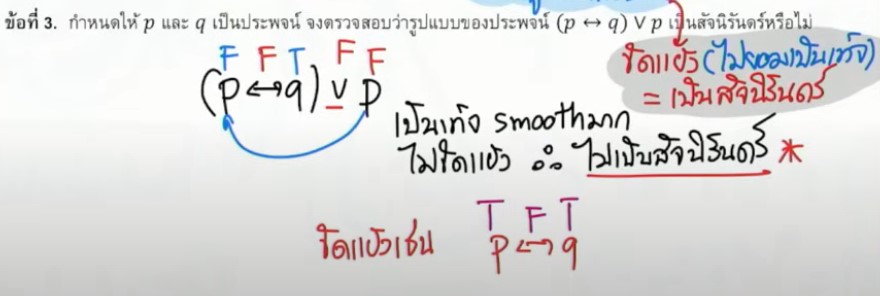 ข้อที่ 3. กำหนดให้ p และ q เป็นประพจน์ จงตรวจสอบว่ารูปแบบของประพจน์ (p ↔ q) ∨ p เป็นสัจนิรันดร์หรือไม่
F F T F F
(p ↔ q) ∨ p
ขัดแย้ง (ไม่ยอมเป็นเท็จ)
= เป็นสัจนิรันดร์
เป็นเท็จ smooth มาก
ไม่ขัดแย้ง ∴ ไม่เป็นสัจนิรันดร์ *
T F T
ขัดแย้งเช่น p ↔ q